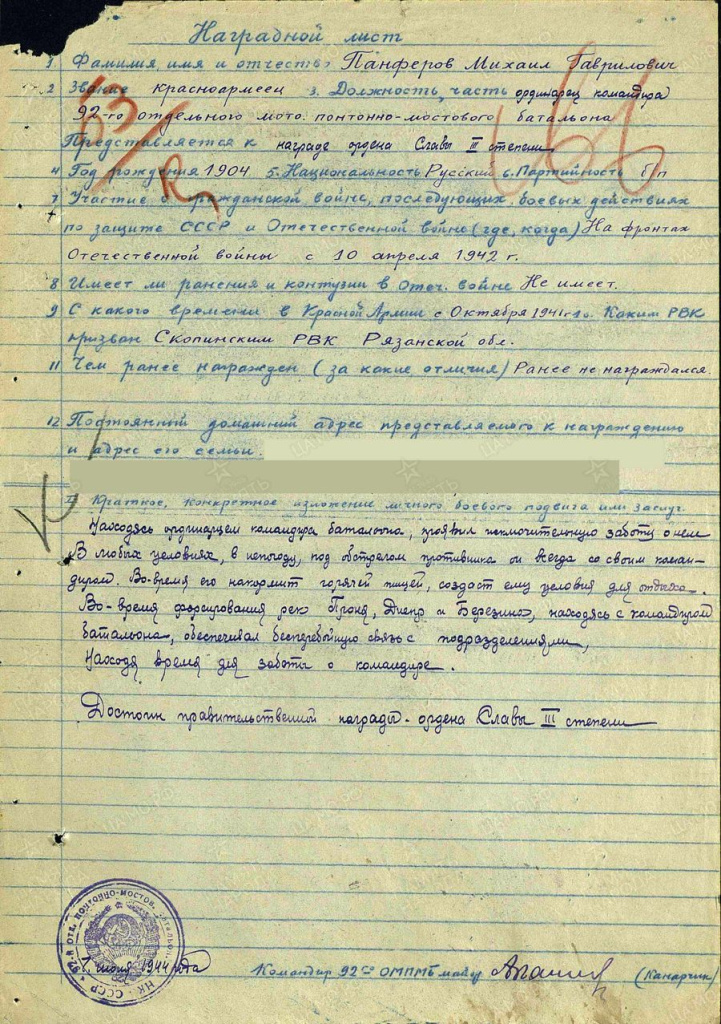 Наградной лист
1 Фамилия, имя и отчество Панферов Михаил Гаврилович
2 Звание красноармеец 3. Должность, часть ординарец командира
92-го отдельного мото. понтонно-мостового батальона
Представляется к награде ордена Славы III степени
4 Год рождения 1904 5. Национальность Русский 6. Партийность б/п
7 Участие в гражданской войне, последующих боевых действиях
по защите СССР и Отечественной войне (где, когда) На фронтах
Отечественной войны с 10 апреля 1942 г.
8 Имеет ли ранения и контузии в Отеч. войне Не имеет.
9 С какого времени в Красной Армии с Октября 1941 г. 10. Каким РВК
призван Скопинским РВК Рязанской обл.
11 Чем ранее награжден (за какие отличия) Ранее не награждался.
12 Постоянный домашний адрес представляемого к награждению
и адрес его семьи.
I Краткое, конкретное изложение личного боевого подвига или заслуг.
Находясь ординарцем командира батальона, проявил исключительную заботу о нем
В любых условиях, в непогоду, под обстрелом противника он всегда со своим коман-
диром. Во-время его накормит горячей пищей, создаст ему условия для отдыха.
Во-время форсирования рек Проня, Днепр и Березино, находясь с командиром
батальона, обеспечивал бесперебойную связь с подразделениями,
Находя время для заботы о командире.
Достоин правительственной награды - ордена Славы III степени
7. июля 1944 года
Командир 92го ОМПМБ майор (Канарчик)
92-й отд. понтонно-мостов. батальо
НК - СССР